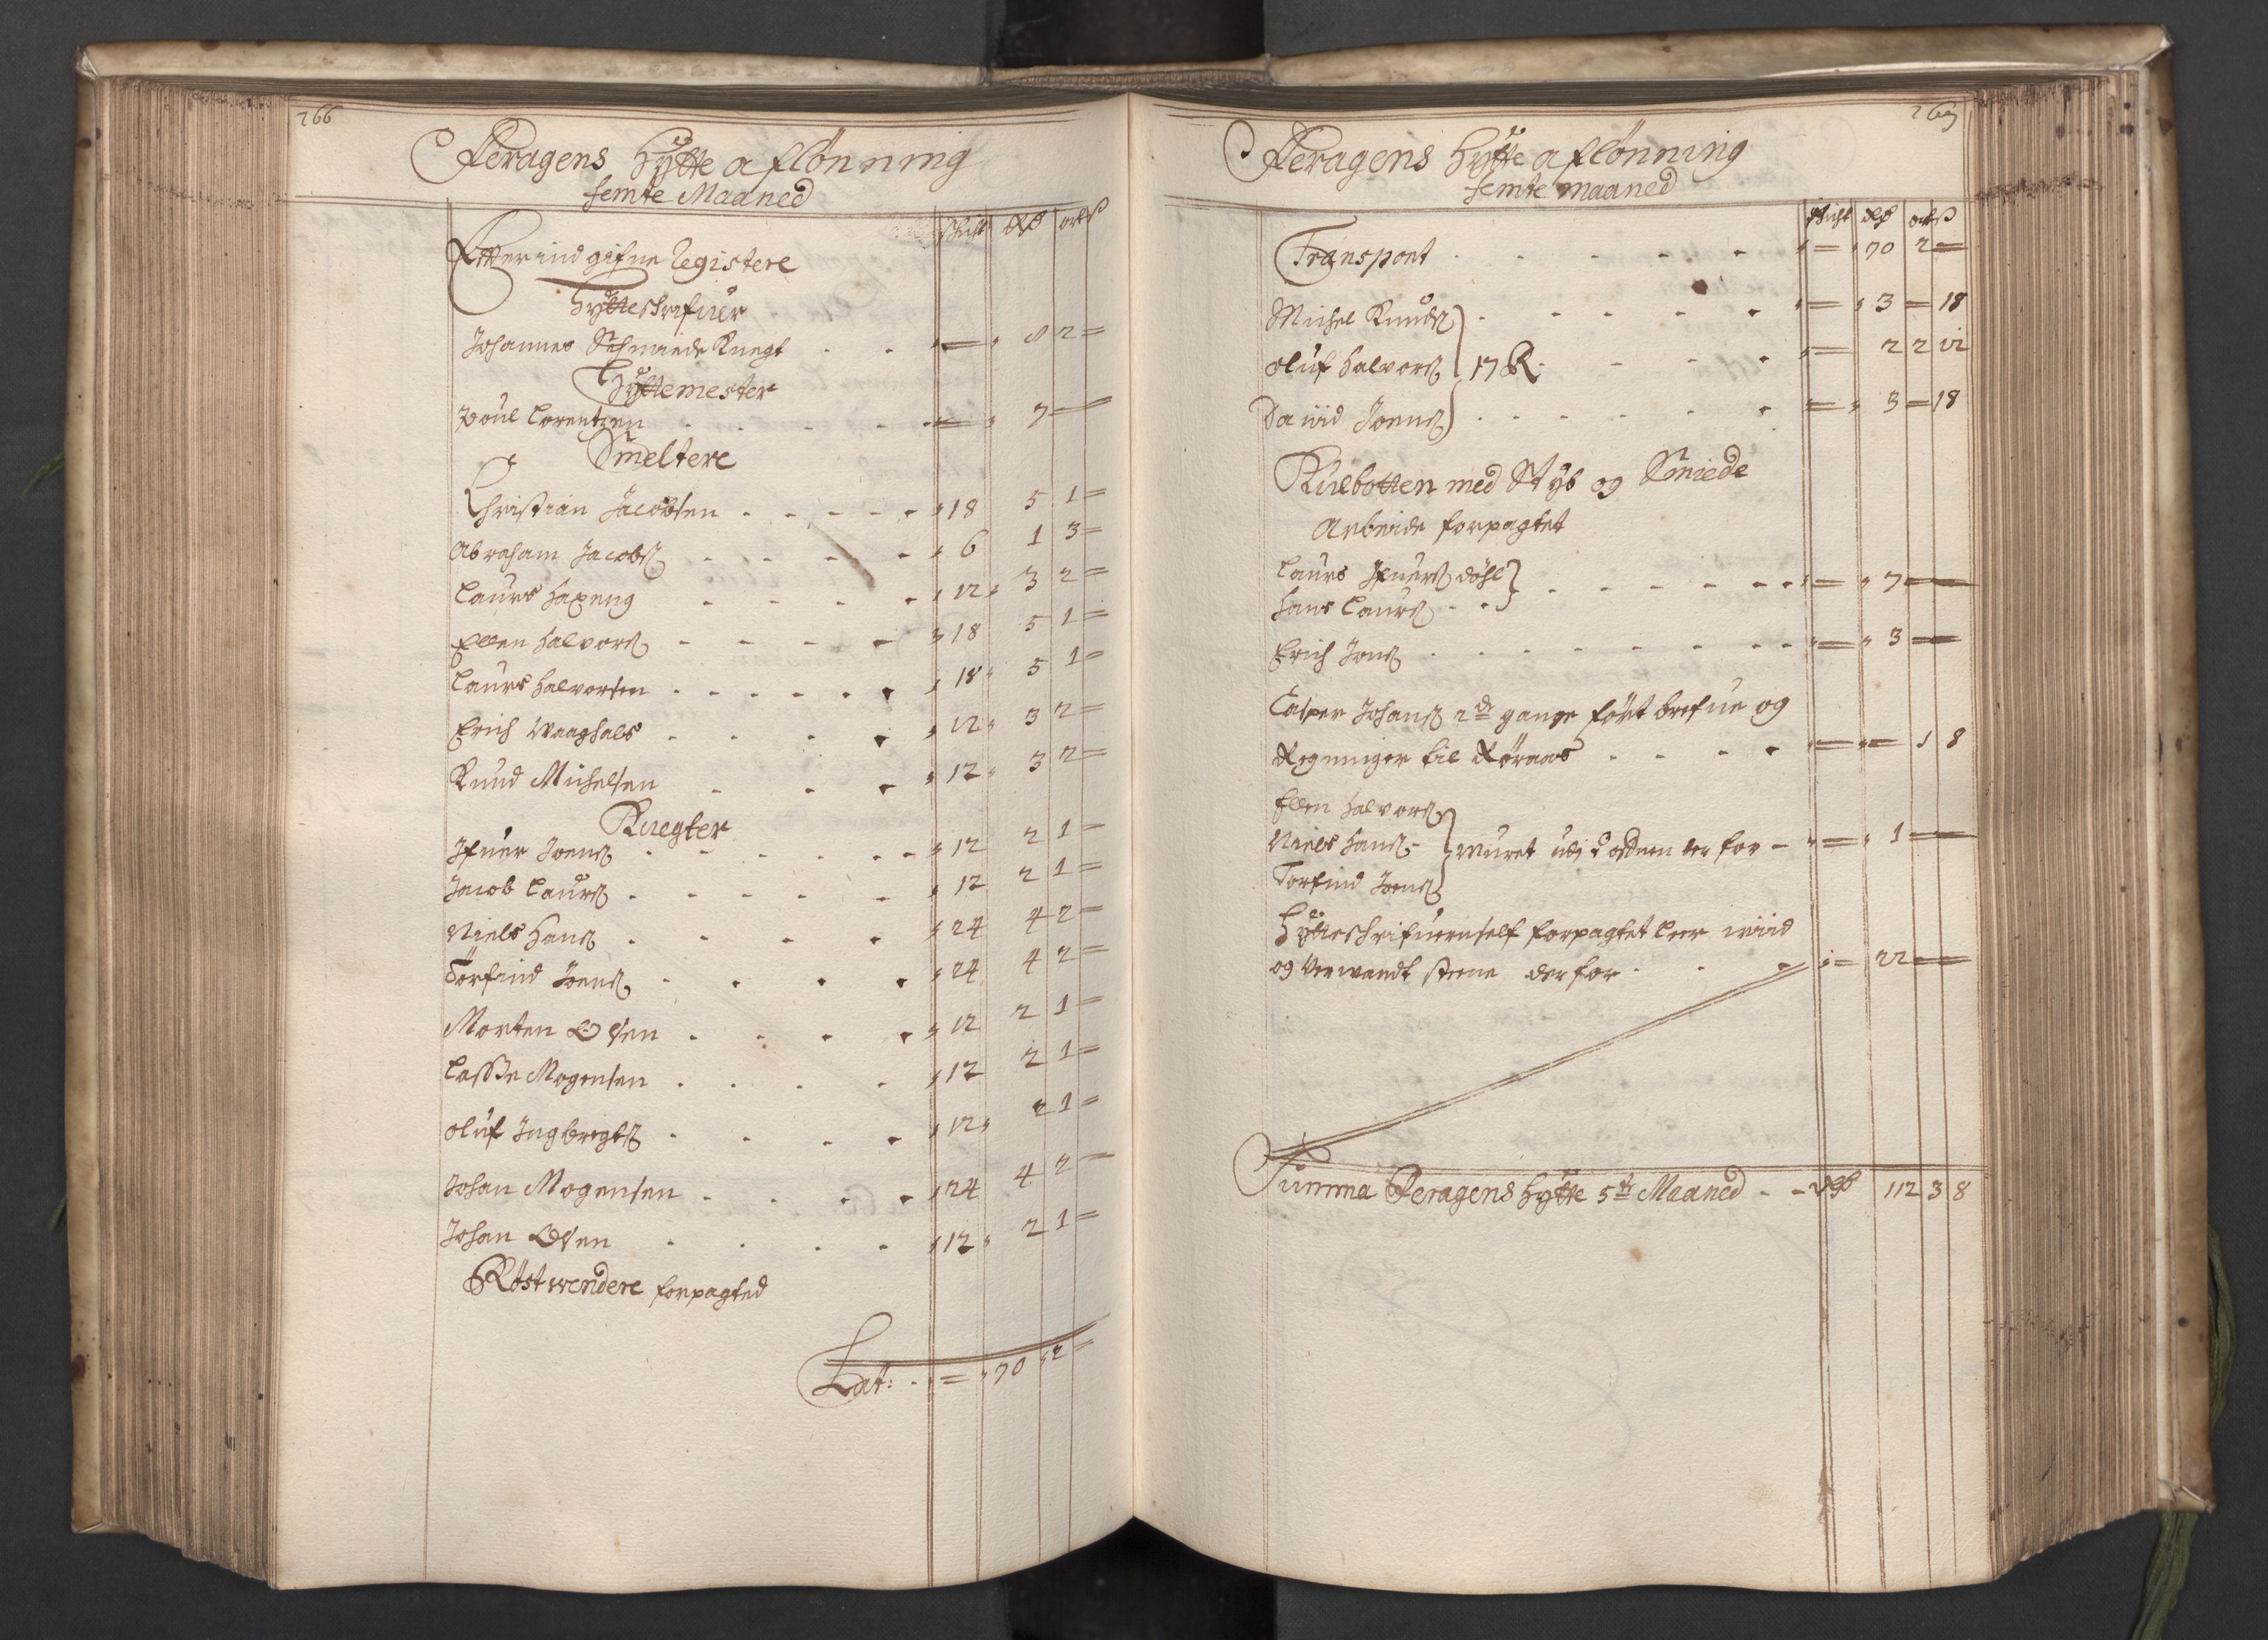 266
Feragens Hytte aflönning
femte Maaned
Schicht Rdr ort ß
Efter indgifne Registere
Hytteschrifuer
Johannes Schmiede Knegt - - = 8 2 =
Hyttemester
Poul Lorentzen - - - = 7 =
Smeltere
Christian Jacobsen - - - 18 5 1 =
Abraham Jacobs - - - 6 1 3 =
Laurs Haxeng - - - 12 3 2 =
Ellen Halvors - - - 18 5 1 =
Laurs Halvorsen - - - 18 5 1 =
Erich Waaghals - - - 12 3 2 =
Knud Michelsen - - - 12 3 2 =
Knegter
Ifuer Joens - - - 12 2 1 =
Jacob Laurs - - - 12 2 1 =
Niels Hans - - - 24 4 2 =
Torfind Joens - - - 24 4 2 =
Morten Olsen - - - 12 2 1 =
Lasse Mogensen - - - 12 2 1 =
Oluf Ingbregts - - - 12 2 1 =
Johan Mogensen - - - 24 4 2 =
Johan Olsen - - - 12 2 1 =
Röstwendere forpagted
Lat: - = 70 2 =
267
Feragens Hytte aflönning
femte Maaned
Schicht Rdr ort ß
Transport - - - = 70 2 =
Michel Knuds - - - = 3 = 18
Oluf Halvors 17 R - - - = 2 2 12
David Joens - - - = 3 = 18
Kulbotten med Styb og Smiede
Arbeide forpagtet
Laurs Ifuers döhl - - - = 7 =
Hans Laurs - -
Erich Jons - - - = 3 =
Casper Johans 2de gange fört brefue og
Regninger til Röraas - - - = = 1 8
Ellen Halvors
Niels Hans - muret udj ofdnen derfor - = 1 =
Torfind Joens
Hytteschrifueren self forpagtet Leer wiid
og Verwandt steene derfor - - = 22 =
Summa Feragens Hytte 5te Maaned - - Rdr 112 3 8